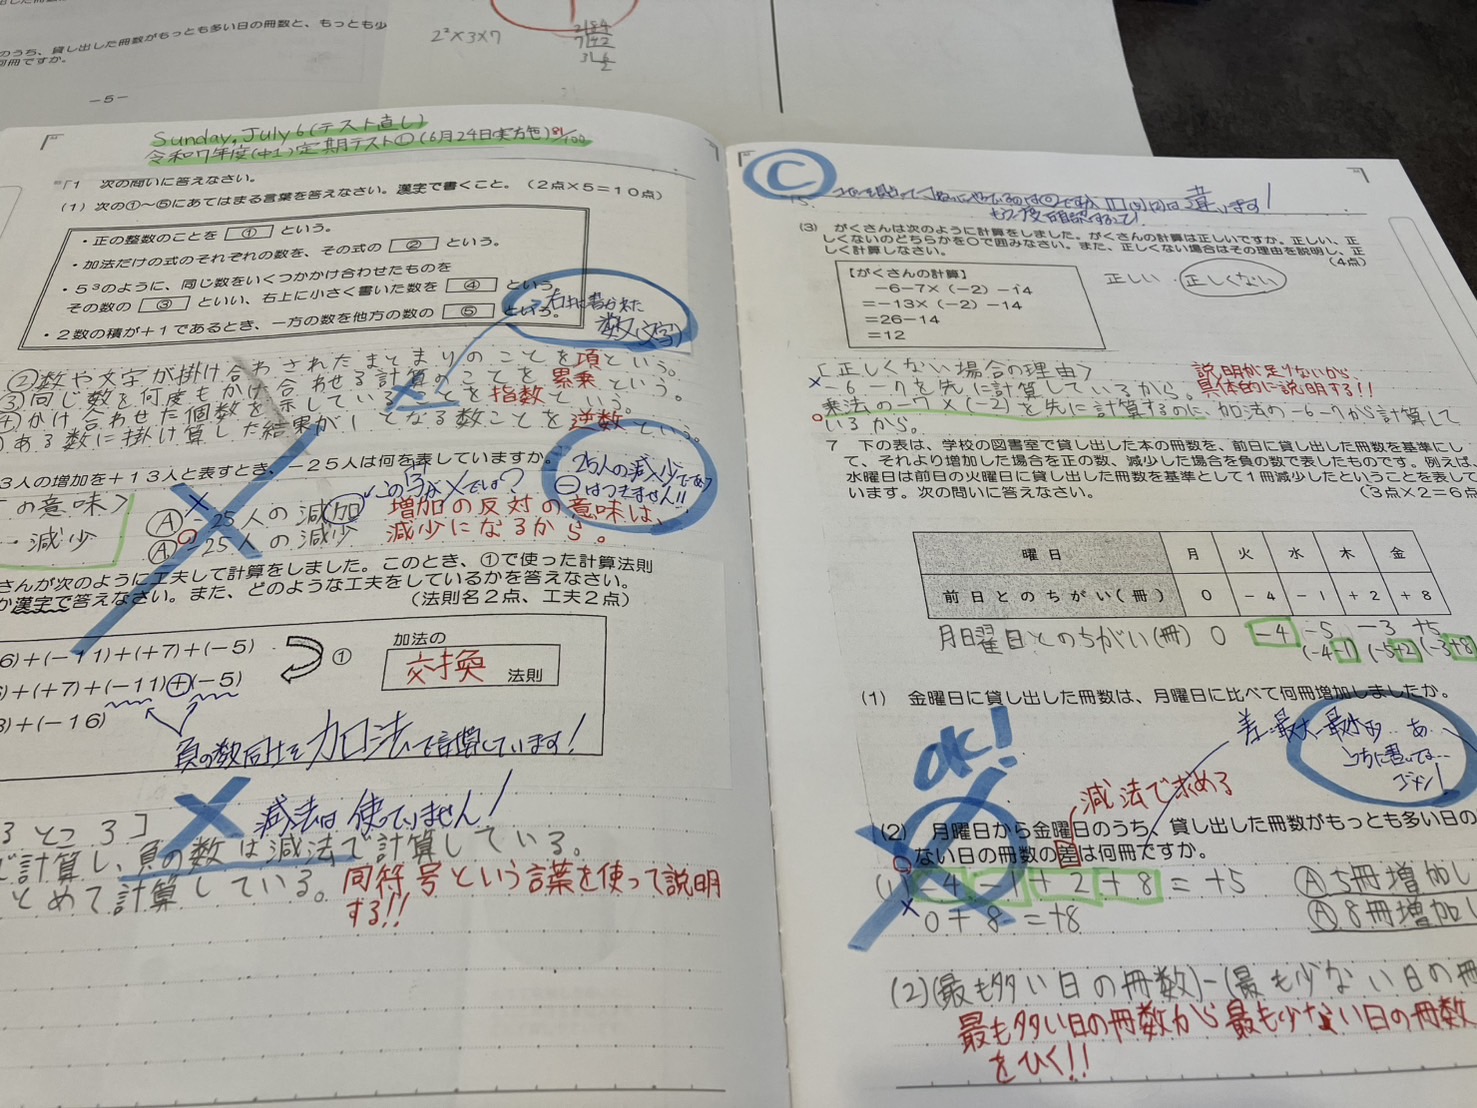 冊数がもっとも多い日の冊数と、もっとも少
のうち、貸し出した
冊ですか。
－5－
2²×3×7
Sunday, July 6(テスト直し)
令和7年度(中1)定期テスト①(6月24日実施) 81/100
1 次の問いに答えなさい。
(1) 次の①～⑤にあてはまる言葉を答えなさい。漢字で書くこと。(2点×5＝10点)
・正の整数のことを ① という。
・加法だけの式のそれぞれの数を、その式の ② という。
・5³のように、同じ数をいくつかかけ合わせたものを
その数の ③ といい、右上に小さく書いた数を ④ という。
・2数の積が＋1であるとき、一方の数を他方の数の ⑤ という。
右上に書かれた
数(文字)
②数や文字が掛け合わされたまとまりのことを項という。
③同じ数を何度もかけ合わせる計算のことを累乗という。
かけ合わせた個数を示していることを指数という。
ある数に掛け算した結果が1となる数ことを逆数という。
3人の増加を＋13人と表すとき、－25人は何を表していますか。
の意味>
・減少
この字が×では?
25人の減少であり
⊖はつきません!!
× Ⓐ -25人の減加 増加の反対の意味は、
○ Ⓐ -25人の減少 減少になるから。
さんが次のように工夫して計算をしました。このとき、①で使った計算法則
か漢字で答えなさい。また、どのような工夫をしているかを答えなさい。
(法則名2点、工夫2点)
6)+(－11)+(+7)+(－5)
+(+7)+(－11)+(－5)
+(－16)
①
加法の
交換 法則
負の数同士を加法で計算しています!
減法は使っていません!
で計算し、負の数は減法で計算している。
とめて計算している。同符号という言葉を使って説明
する!!
C
違います!
もう一度確認すること!
(3) がくさんは次のように計算をしました。がくさんの計算は正しいですか。正しい、正
しくないのどちらかを○で囲みなさい。また、正しくない場合はその理由を説明し、正
しく計算しなさい。 (4点)
【がくさんの計算】
－6－7×(－2)－14
＝－13×(－2)－14
＝26－14
＝12
正しい ・ 正しくない
<正しくない場合の理由>
説明が足りないから、
具体的に説明する!!
× -6-7を先に計算しているから。
○ 乗法の-7×(-2)を先に計算するのに、加法の-6-7から計算して
いるから。
7 下の表は、学校の図書室で貸し出した本の冊数を、前日に貸し出した冊数を基準にし
て、それより増加した場合を正の数、減少した場合を負の数で表したものです。例えば、
水曜日は前日の火曜日に貸し出した冊数を基準として1冊減少したということを表して
います。次の問いに答えなさい。 (3点×2＝6点
曜日 月 火 水 木 金
前日とのちがい(冊) 0 －4 －1 ＋2 ＋8
月曜日とのちがい(冊) 0 -4 -5 -3 +5
(-4-1) (-5+2) (-3+8)
(1) 金曜日に貸し出した冊数は、月曜日に比べて何冊増加しましたか。
OK!
うちに書いてる…
ゴメン!
減法で求める
(2) 月曜日から金曜日のうち、貸し出した冊数がもっとも多い日の
ない日の冊数の差は何冊ですか。
○ (1) -4-1+2+8=+5 Ⓐ5冊増加し
× 0+8=+8 Ⓐ8冊増加し
(2)(最も多い日の冊数)-(最も少ない日の冊
最も多い日の冊数から最も少ない日の冊数
をひく!!